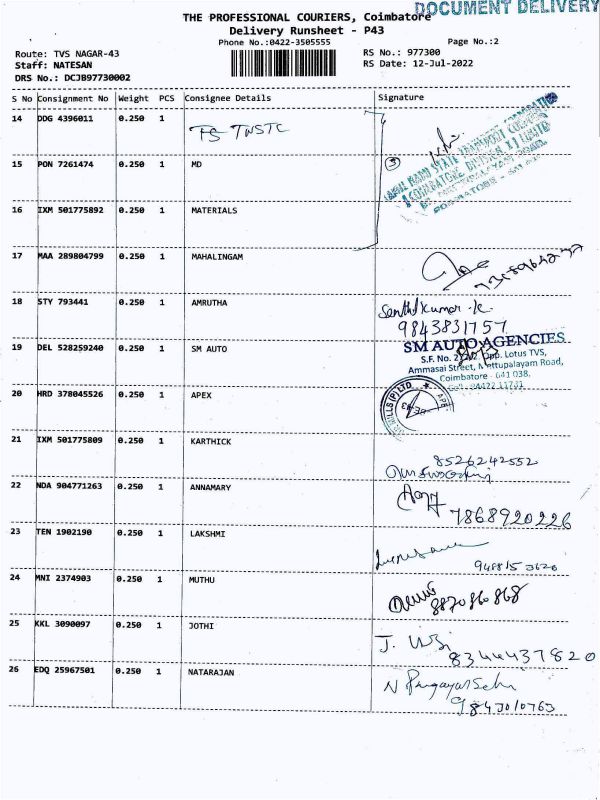 DOCUMENT DELIVERY
THE PROFESSIONAL COURIERS, Coimbatore
Delivery Runsheet - P43
Phone No.:0422-3505555
Page No.:2
Route: TVS NAGAR-43
RS No.: 977300
Staff: NATESAN
RS Date: 12-Jul-2022
DRS No.: DCJB97730002
S No Consignment No Weight PCS Consignee Details Signature
14 DDG 4396011 0.250 1 TS TNSTC
15 PON 7261474 0.250 1 MD
TAMIL NADU STATE TRANSPORT CORPORATION
(COIMBATORE DIVISION II) LIMITED
16 IXM 501775892 0.250 1 MATERIALS
17 MAA 289804799 0.250 1 MAHALINGAM
18 STY 793441 0.250 1 AMRUTHA
Senthilkumar .K
9843831757
19 DEL 528259240 0.250 1 SM AUTO
SM AUTO AGENCIES
S.F. No. Opp. Lotus TVS,
Ammasai Street, Mettupalayam Road,
Coimbatore - 641 038.
20 HRD 378045526 0.250 1 APEX
21 IXM 501775809 0.250 1 KARTHICK
8526242552
22 NDA 904771263 0.250 1 ANNAMARY
7868920226
23 TEN 1902190 0.250 1 LAKSHMI
948815 3620
24 MNI 2374903 0.250 1 MUTHU
887086868
25 KKL 3090097 0.250 1 JOTHI
J.
8344437820
26 EDQ 25967501 0.250 1 NATARAJAN
9843010763